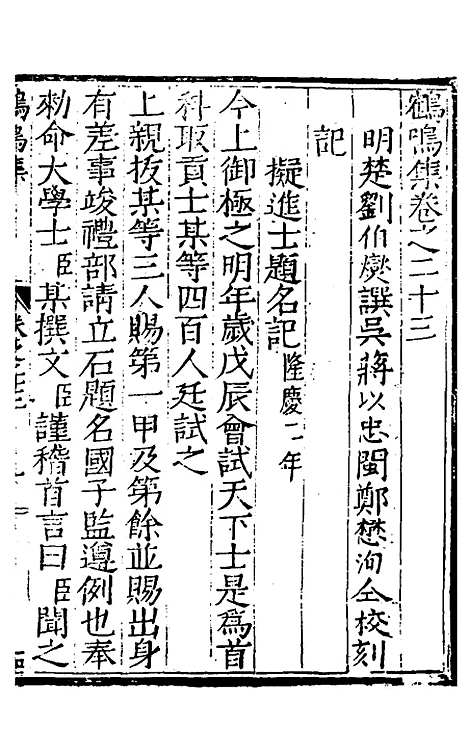 鶴鳴集卷之二十三
明楚劉伯燮譔吳蔣以忠閩鄭懋洵仝校刻
記
擬進士題名記隆慶二年
今上御極之明年歲戊辰會試天下士是爲首
科取貢士某等四百人廷試之
上親拔某等三人賜第一甲及第餘並賜出身
有差事竣禮部請立石題名國子監遵例也奉
勑命大學士臣某撰文臣謹稽首言曰臣聞之
鶴鳴集